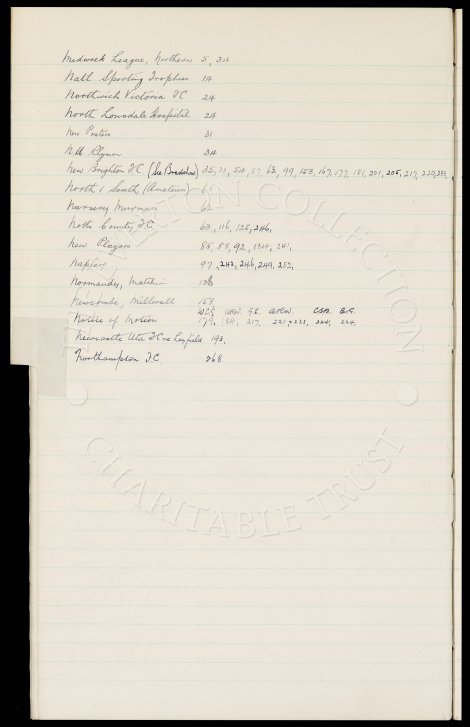 Midweek League, Northern 5, 34
Natl. Sporting Trophies 14
Northwich Victoria F.C 24
North Lonsdale Hospital 24
New Posters 31
34
New Brighton F.C. (See Bradshaw) 35, 31, 54, 57, 63, 99, 158, 167, 177, 181, 201, 205, 217, 220, 233
North v South (Amateur) 61
Nursery 62
Notts County F.C. 63, 116, 125, 246,
New Players 85, 88, 92, 134, 241,
Napier 97, 242, 246, 249, 252,
Normandy, Match in 136
Newcombe, Millwall 158
Notice of Motion 179, 184, 217, 221, 223, 224, 224,
Newcastle Utd F.C. re Leyfield 193,
Northampton F.C. 268
WINTON COLLECTION
CHARITABLE TRUST